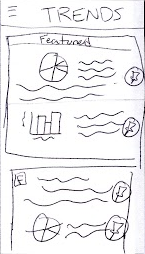 TRENDS
Featured